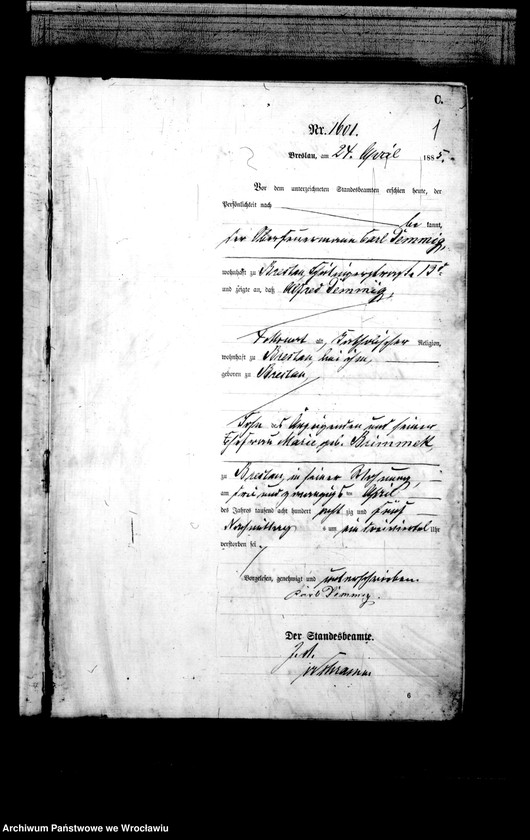 C.
Nr. 1601. 1
Breslau, am 24. April 1885.
Vor dem unterzeichneten Standesbeamten erschien heute, der
Persönlichkeit nach
be kannt,
der Oberfeuermann Carl Demmig,
wohnhaft zu Breslau, 13
und zeigte an, daß Alfred Demmig,
alt, katholischer Religion,
wohnhaft zu Breslau, bei ihm,
geboren zu Breslau,
Sohn des Anzeigenden und seiner
Ehefrau Marie, geb. Krimmek,
zu Breslau, in seiner Wohnung,
am drei und zwanzigsten April
des Jahres tausend acht hundert acht zig und fünf
Nachmittag um ein dreiviertel Uhr
verstorben sei.
Vorgelesen, genehmigt und unterschrieben.
Carl Demmig.
Der Standesbeamte.
6
Archiwum Państwowe we Wrocławiu